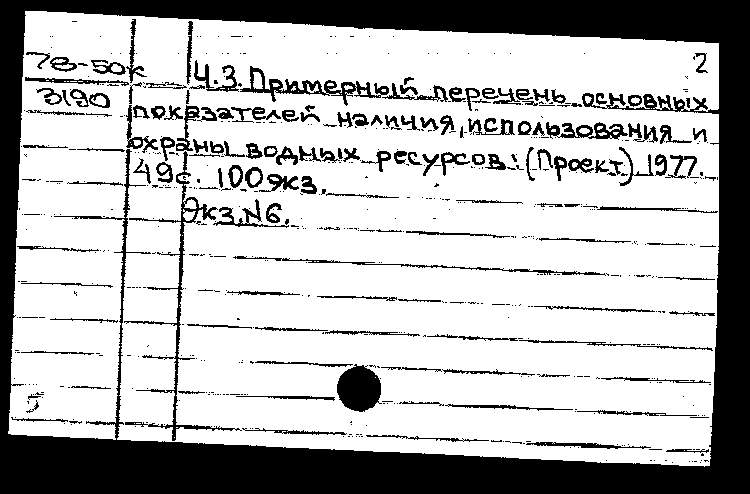 2
78-50к
3190
Ч.3. Примерный перечень основных
показателей наличия, использования и
охраны водных ресурсов: (Проект). 1977.
49с. 100экз.
Экз. N6.
5